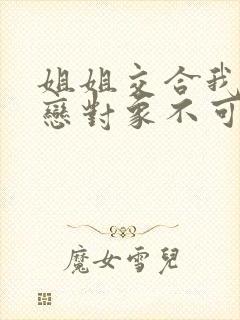 姐姐交合我
戀對象不可
魔女雪兒